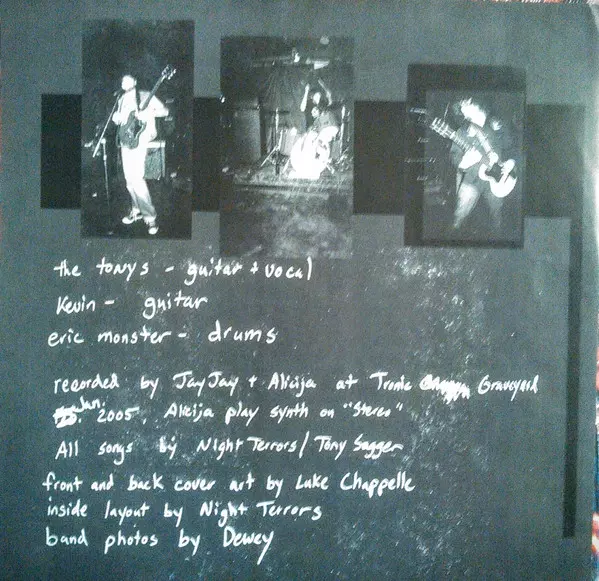 the tonys - guitar + vocal
Kevin - guitar
eric monster - drums
recorded by JayJay + Alicija at Tronic Graveyard
Jan. 2005. Alicija play synth on "Stereo"
All songs by Night Terrors/Tony Sagger
front and back cover art by Luke Chappelle
inside layout by Night Terrors
band photos by Dewey